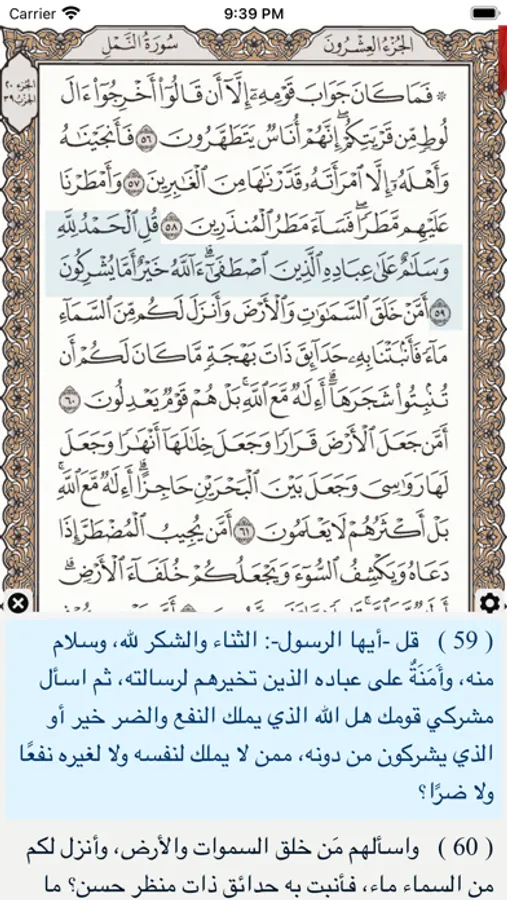 Carrier 9:39 PM
الجزء العشرون
سورة النمل
الجزء ٢٠
الحزب ٣٩
۞ فَمَا كَانَ جَوَابَ قَوْمِهِۦٓ إِلَّآ أَن قَالُوٓا۟ أَخْرِجُوٓا۟ ءَالَ
لُوطٍ مِّن قَرْيَتِكُمْ ۖ إِنَّهُمْ أُنَاسٌ يَتَطَهَّرُونَ ٥٦ فَأَنجَيْنَٰهُ
وَأَهْلَهُۥٓ إِلَّا ٱمْرَأَتَهُۥ قَدَّرْنَٰهَا مِنَ ٱلْغَٰبِرِينَ ٥٧ وَأَمْطَرْنَا
عَلَيْهِم مَّطَرًا ۖ فَسَآءَ مَطَرُ ٱلْمُنذَرِينَ ٥٨ قُلِ ٱلْحَمْدُ لِلَّهِ
وَسَلَٰمٌ عَلَىٰ عِبَادِهِ ٱلَّذِينَ ٱصْطَفَىٰٓ ۗ ءَآللَّهُ خَيْرٌ أَمَّا يُشْرِكُونَ
٥٩ أَمَّنْ خَلَقَ ٱلسَّمَٰوَٰتِ وَٱلْأَرْضَ وَأَنزَلَ لَكُم مِّنَ ٱلسَّمَآءِ
مَآءً فَأَنۢبَتْنَا بِهِۦ حَدَآئِقَ ذَاتَ بَهْجَةٍ مَّا كَانَ لَكُمْ أَن
تُنۢبِتُوا۟ شَجَرَهَآ ۗ أَءِلَٰهٌ مَّعَ ٱللَّهِ ۚ بَلْ هُمْ قَوْمٌ يَعْدِلُونَ ٦٠
أَمَّن جَعَلَ ٱلْأَرْضَ قَرَارًا وَجَعَلَ خِلَٰلَهَآ أَنْهَٰرًا وَجَعَلَ
لَهَا رَوَٰسِىَ وَجَعَلَ بَيْنَ ٱلْبَحْرَيْنِ حَاجِزًا ۗ أَءِلَٰهٌ مَّعَ ٱللَّهِ ۚ
بَلْ أَكْثَرُهُمْ لَا يَعْلَمُونَ ٦١ أَمَّن يُجِيبُ ٱلْمُضْطَرَّ إِذَا
دَعَاهُ وَيَكْشِفُ ٱلسُّوٓءَ وَيَجْعَلُكُمْ خُلَفَآءَ ٱلْأَرْضِ ۗ
( 59 ) قل -أيها الرسول-: الثناء والشكر لله، وسلام
منه، وأَمَنَةٌ على عباده الذين تخيرهم لرسالته، ثم اسأل
مشركي قومك هل الله الذي يملك النفع والضر خير أو
الذي يشركون من دونه، ممن لا يملك لنفسه ولا لغيره نفعًا
ولا ضرًا؟
( 60 ) واسألهم مَن خلق السموات والأرض، وأنزل لكم
من السماء ماء، فأنبت به حدائق ذات منظر حسن؟ ما